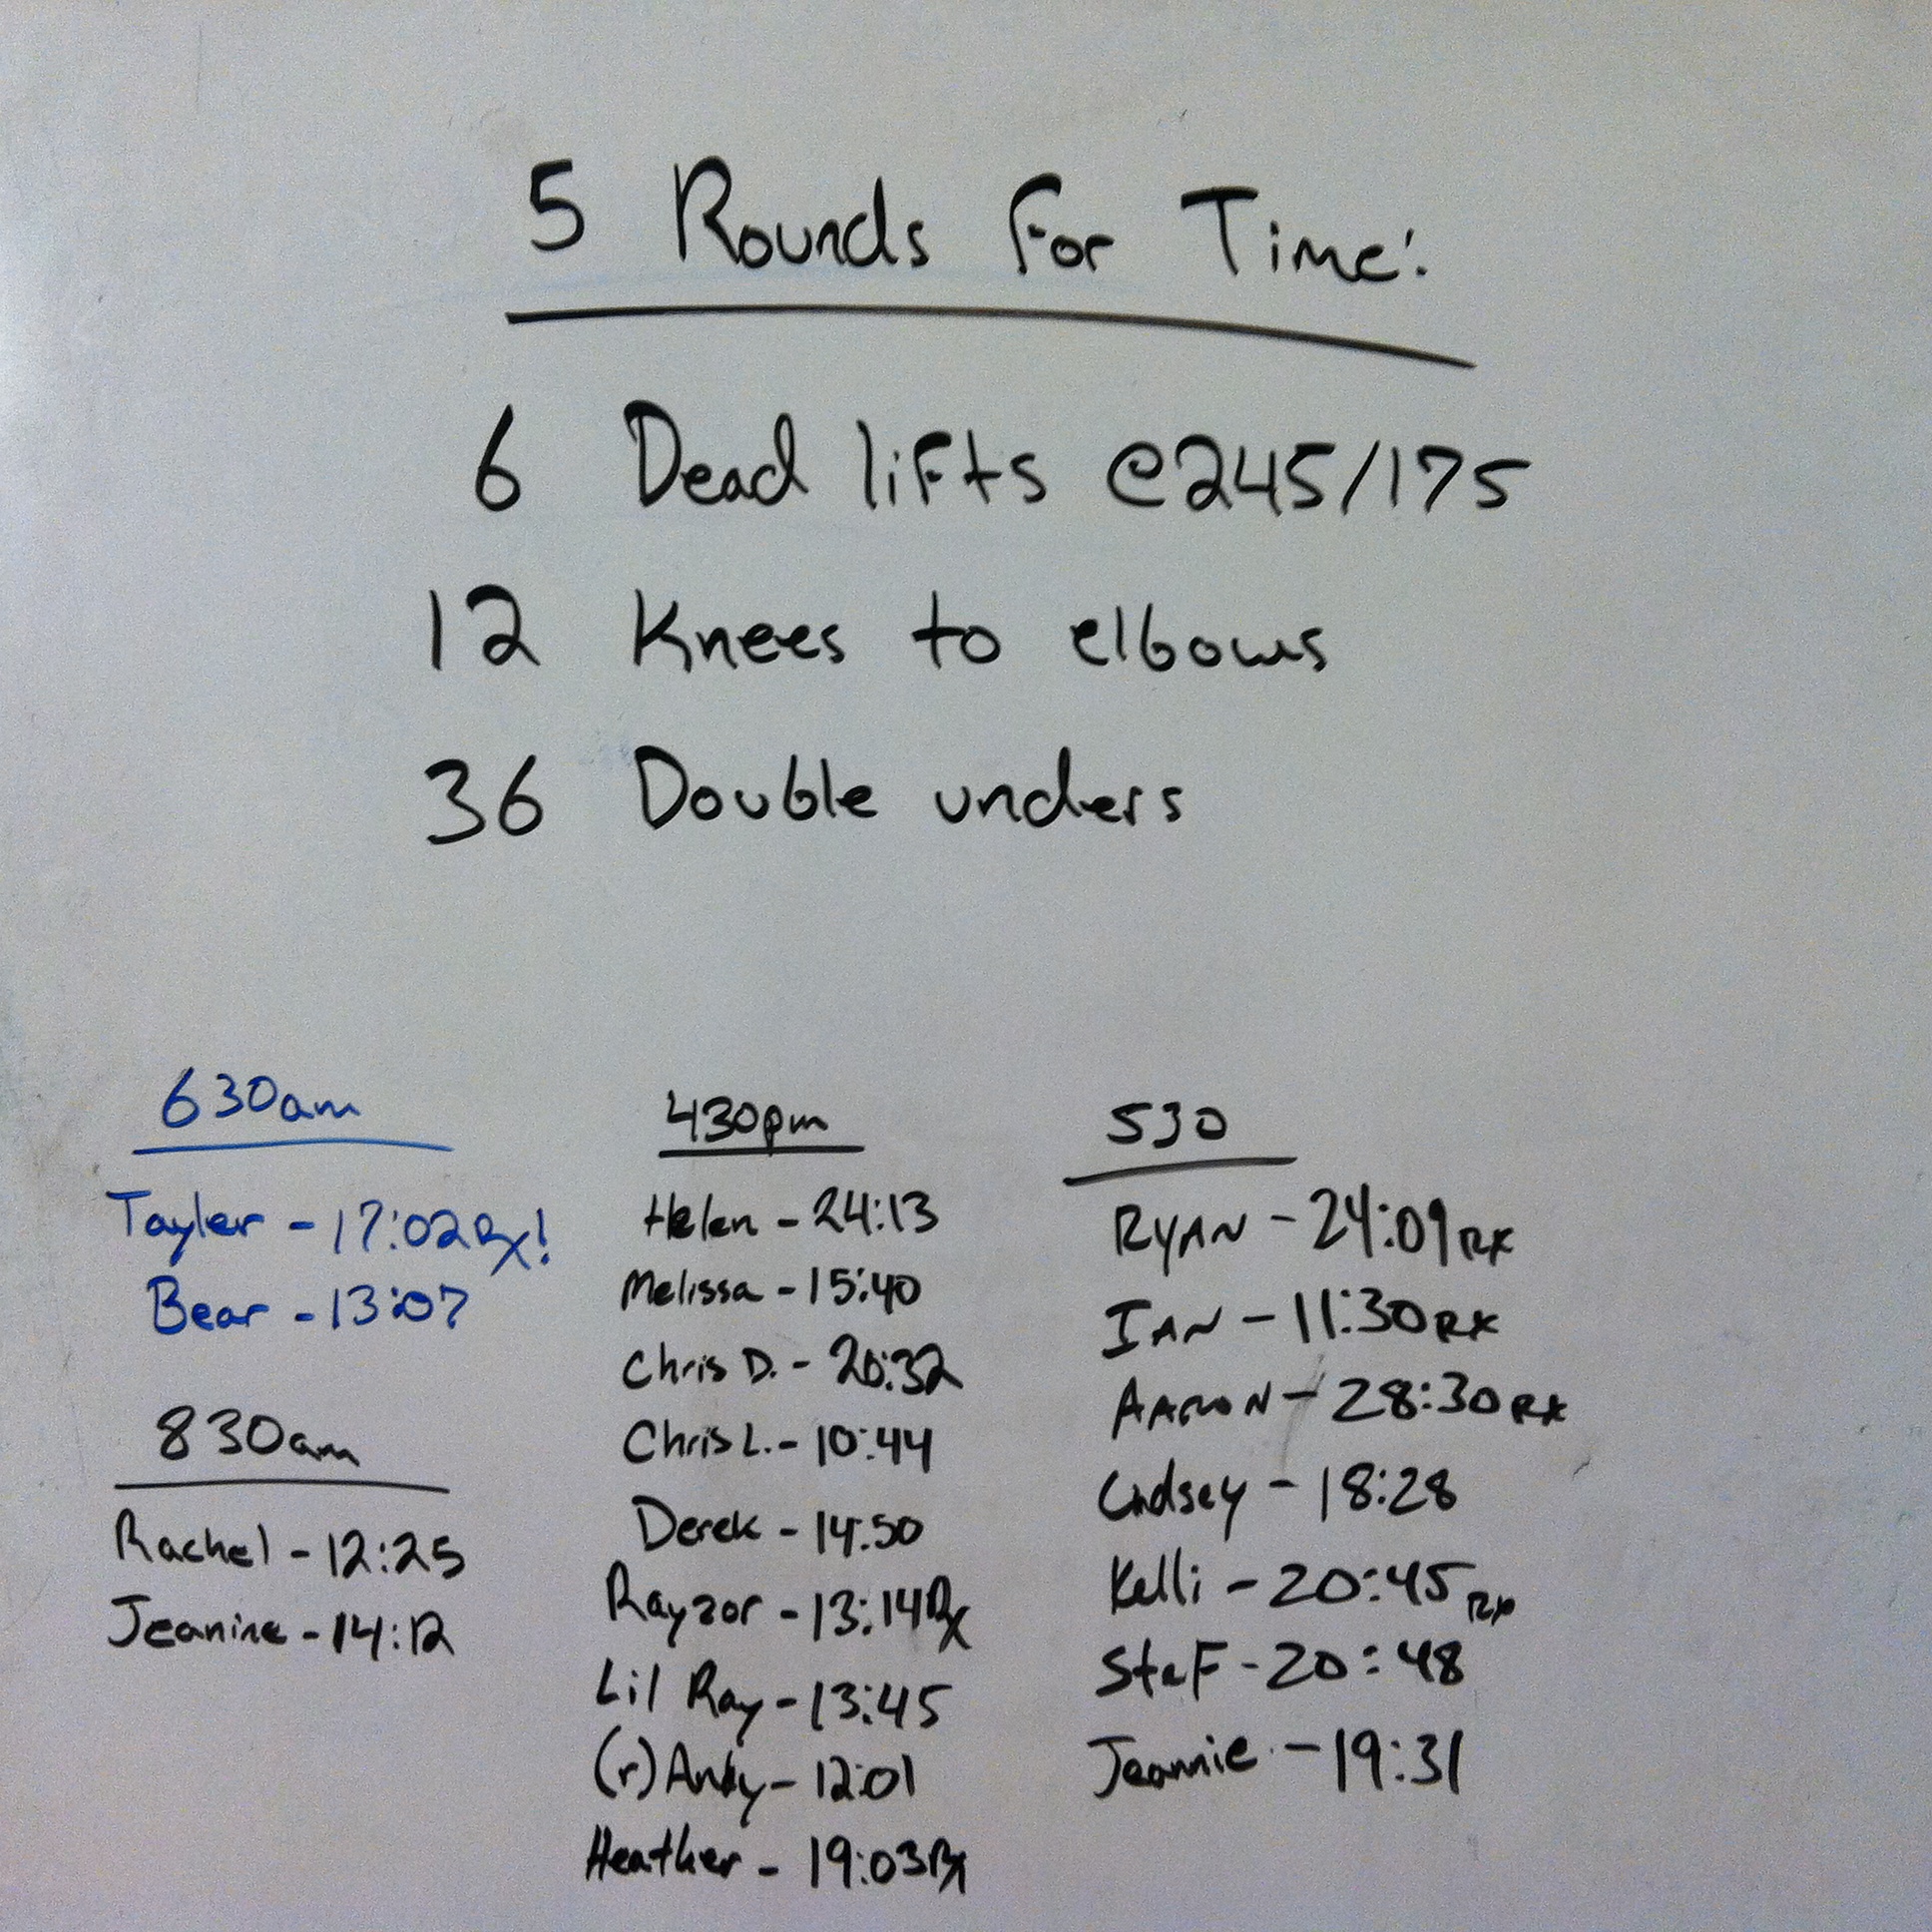 5 Rounds For Time:
6 Dead lifts @245/175
12 Knees to elbows
36 Double unders
630am
Tayler - 17:02Rx!
Bear - 13:07
830am
Rachel - 12:25
Jeanine - 14:12
430pm
Helen - 24:13
Melissa - 15:40
Chris D. - 20:32
Chris L. - 10:44
Derek - 14:50
Rayzor - 13:14Rx
Lil Ray - 13:45
(r) Andy - 12:01
Heather - 19:03Rx
530
RYAN - 24:09 RX
IAN - 11:30 RX
AARON - 28:30 RX
Lindsey - 18:28
Kelli - 20:45 RX
Stef - 20:48
Jeannie - 19:31